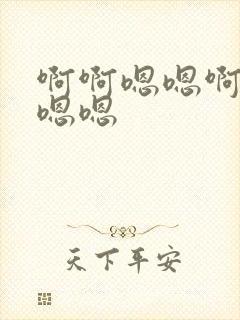 啊啊嗯嗯啊
嗯嗯
天下平安